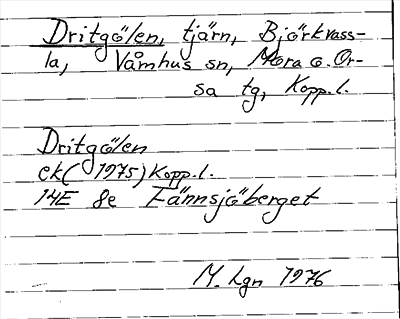 Dritgölen, tjärn, Björkvass-
la, Våmhus sn, Mora o. Or-
sa tg, Kopp.l.
Dritgölen
ek (1975) Kopp.l.
14E 8e Fännsjöberget
M. Lgn 1976